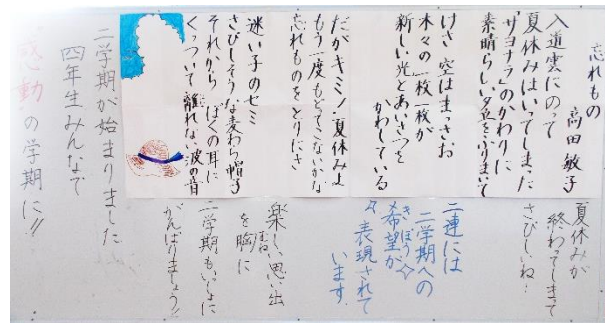 忘れもの
高田敏子
入道雲にのって
夏休みはいってしまった
「サヨナラ」のかわりに
素晴らしい夕立をふりまいて
けさ 空はまっさお
木々の一枚一枚が
新しい光とあいさつを
かわしている
だがキミ!夏休みよ
もう一度もどってこないかな
忘れものをとりにさ
迷い子のセミ
さびしそうな麦わら帽子
それから ぼくの耳に
くっついて離れない波の音
夏休みが
終わってしまって
さびしいね!
二連には
二学期への
きぼう
希望が☆
表現されて
います
楽しい思い出
を胸に
むね
二学期もいっしょに
がんばりましょう!!
二学期が始まりました
四年生みんなで
感動の学期に!!